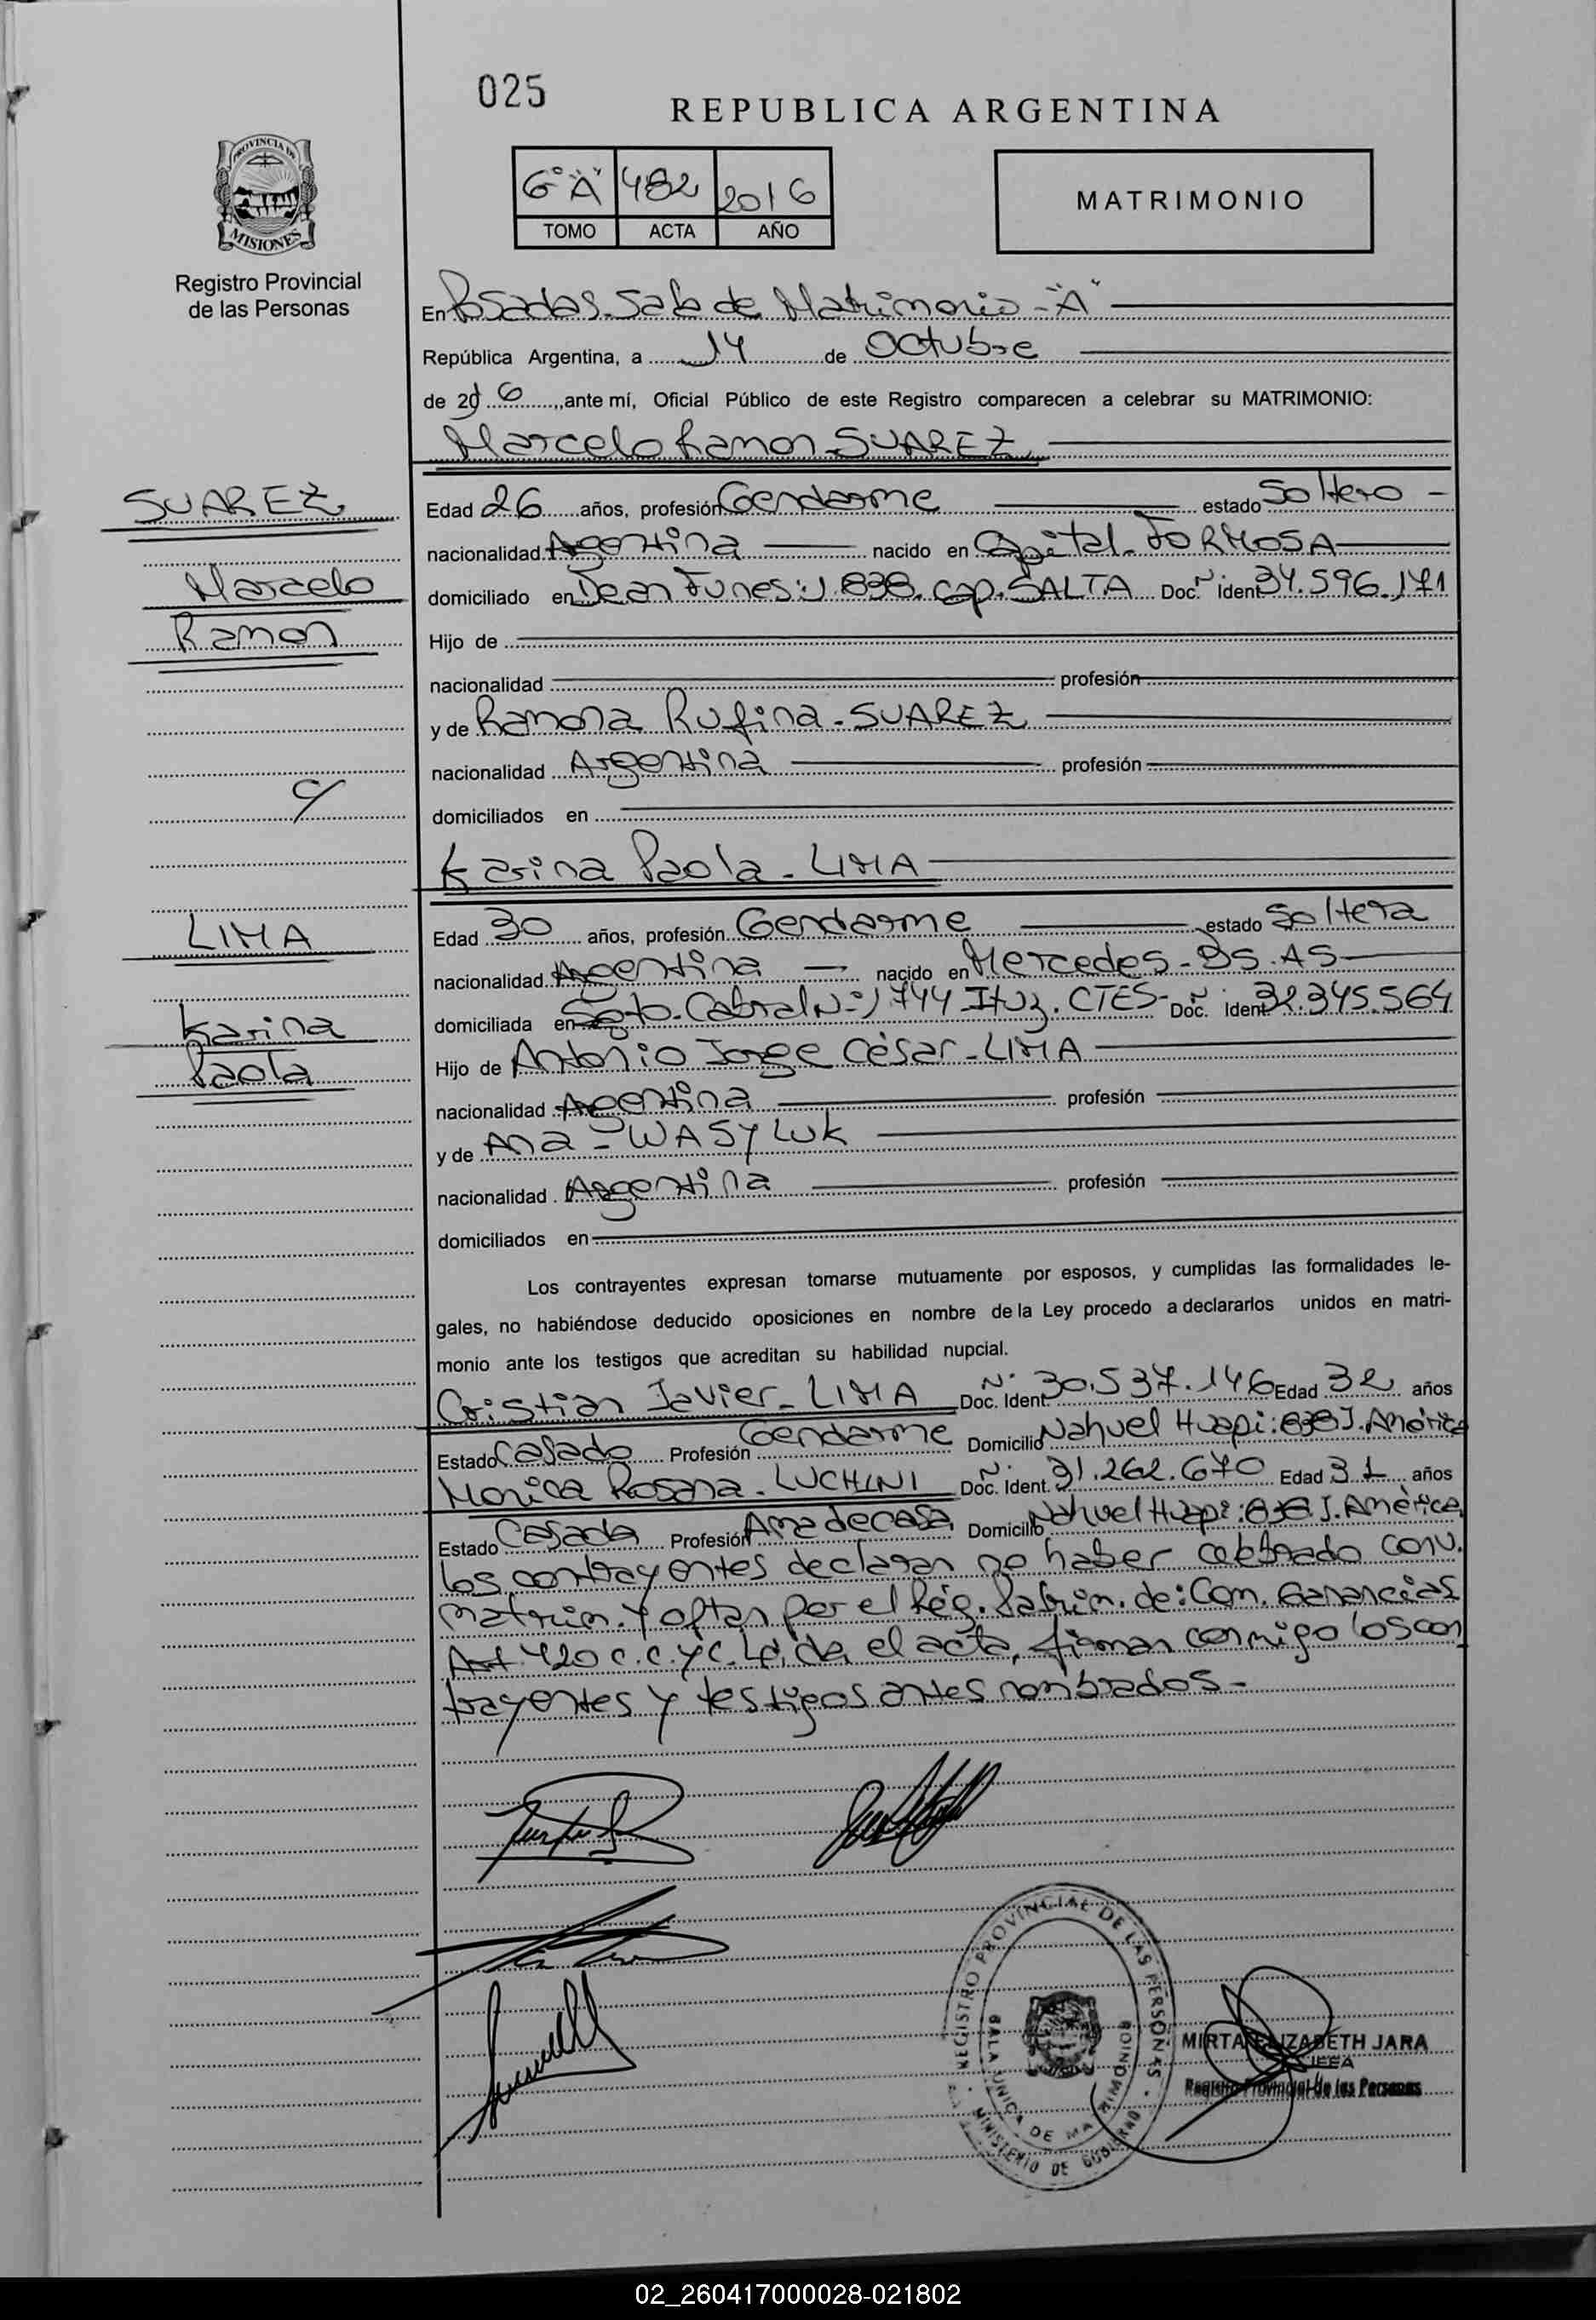 025
REPUBLICA ARGENTINA
6° "A" 482 2016
TOMO ACTA AÑO
MATRIMONIO
PROVINCIA DE
MISIONES
Registro Provincial
de las Personas
En Posadas. Sala de Matrimonio - "A"
República Argentina, a 14 de Octubre
de 2016, ante mí, Oficial Público de este Registro comparecen a celebrar su MATRIMONIO:
Marcelo Ramon SUAREZ
SUAREZ
Marcelo
Ramon
Edad 26 años, profesión Gendarme estado Soltero -
nacionalidad Argentina nacido en Capital - FORMOSA
domiciliado en Dean Funes: 1.838. Cap. SALTA Doc. N° ident 34.596.171
Hijo de
nacionalidad profesión
y de Ramona Rufina - SUAREZ
nacionalidad Argentina profesión
domiciliados en
c/
Karina Paola - LIMA
LIMA
Karina
Paola
Edad 30 años, profesión Gendarme estado Soltera
nacionalidad Argentina nacido en Mercedes - BS. AS
domiciliada en Sgto. Cabral N° 1744 Ituz. CTES - Doc. N° ident 32.345.564
Hijo de Antonio Jorge César - LIMA
nacionalidad Argentina profesión
y de Ana - WASYLUK
nacionalidad Argentina profesión
domiciliados en
Los contrayentes expresan tomarse mutuamente por esposos, y cumplidas las formalidades le-
gales, no habiéndose deducido oposiciones en nombre de la Ley procedo a declararlos unidos en matri-
monio ante los testigos que acreditan su habilidad nupcial.
Cristian Javier - LIMA Doc. N° Ident. 30.537.146 Edad 32 años
Estado Casado Profesión Gendarme Domicilio Nahuel Huapi: 838 J. América
Monica Rosana - LUCHINI Doc. N° Ident. 31.262.670 Edad 31 años
Estado Casada Profesión Ama de casa Domicilio Nahuel Huapi: 838 J. América
los contrayentes declaran no haber celebrado Conv.
Matrim. y optan por el Rég. Patrim. de: Com. Ganancias
Art 420 C.C.yC. Leída el acta, firman conmigo los con
trayentes y testigos antes nombrados -
REGISTRO PROVINCIAL DE LAS PERSONAS
SALA UNICA DE MATRIMONIOS
MINISTERIO DE GOBIERNO
MIRTA ELIZABETH JARA
JEFA
Registro Provincial de las Personas
02_260417000028-021802